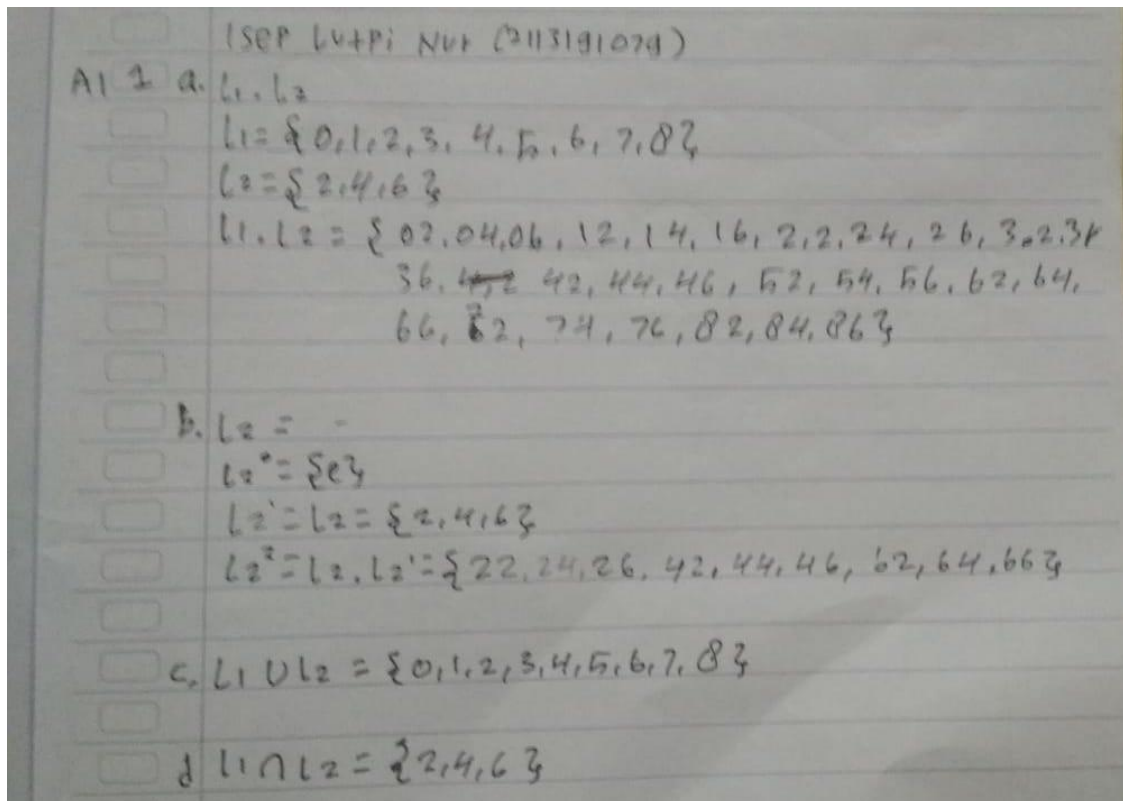 Isep Lutpi Nur (2113191079)
A1 1 a. L1.L2
L1={0,1,2,3,4,5,6,7,8}
L2={2,4,6}
L1.L2={02,04,06,12,14,16,2,2,24,26,3.2.34
36,4,2 42,44,46,52,54,56,62,64,
66,72,74,76,82,84,86}
b. L2= -
L2°={e}
L2'=L2={2,4,6}
L2²=L2.L2'={22,24,26,42,44,46,62,64,66}
c. L1∪L2={0,1,2,3,4,5,6,7,8}
d L1∩L2={2,4,6}